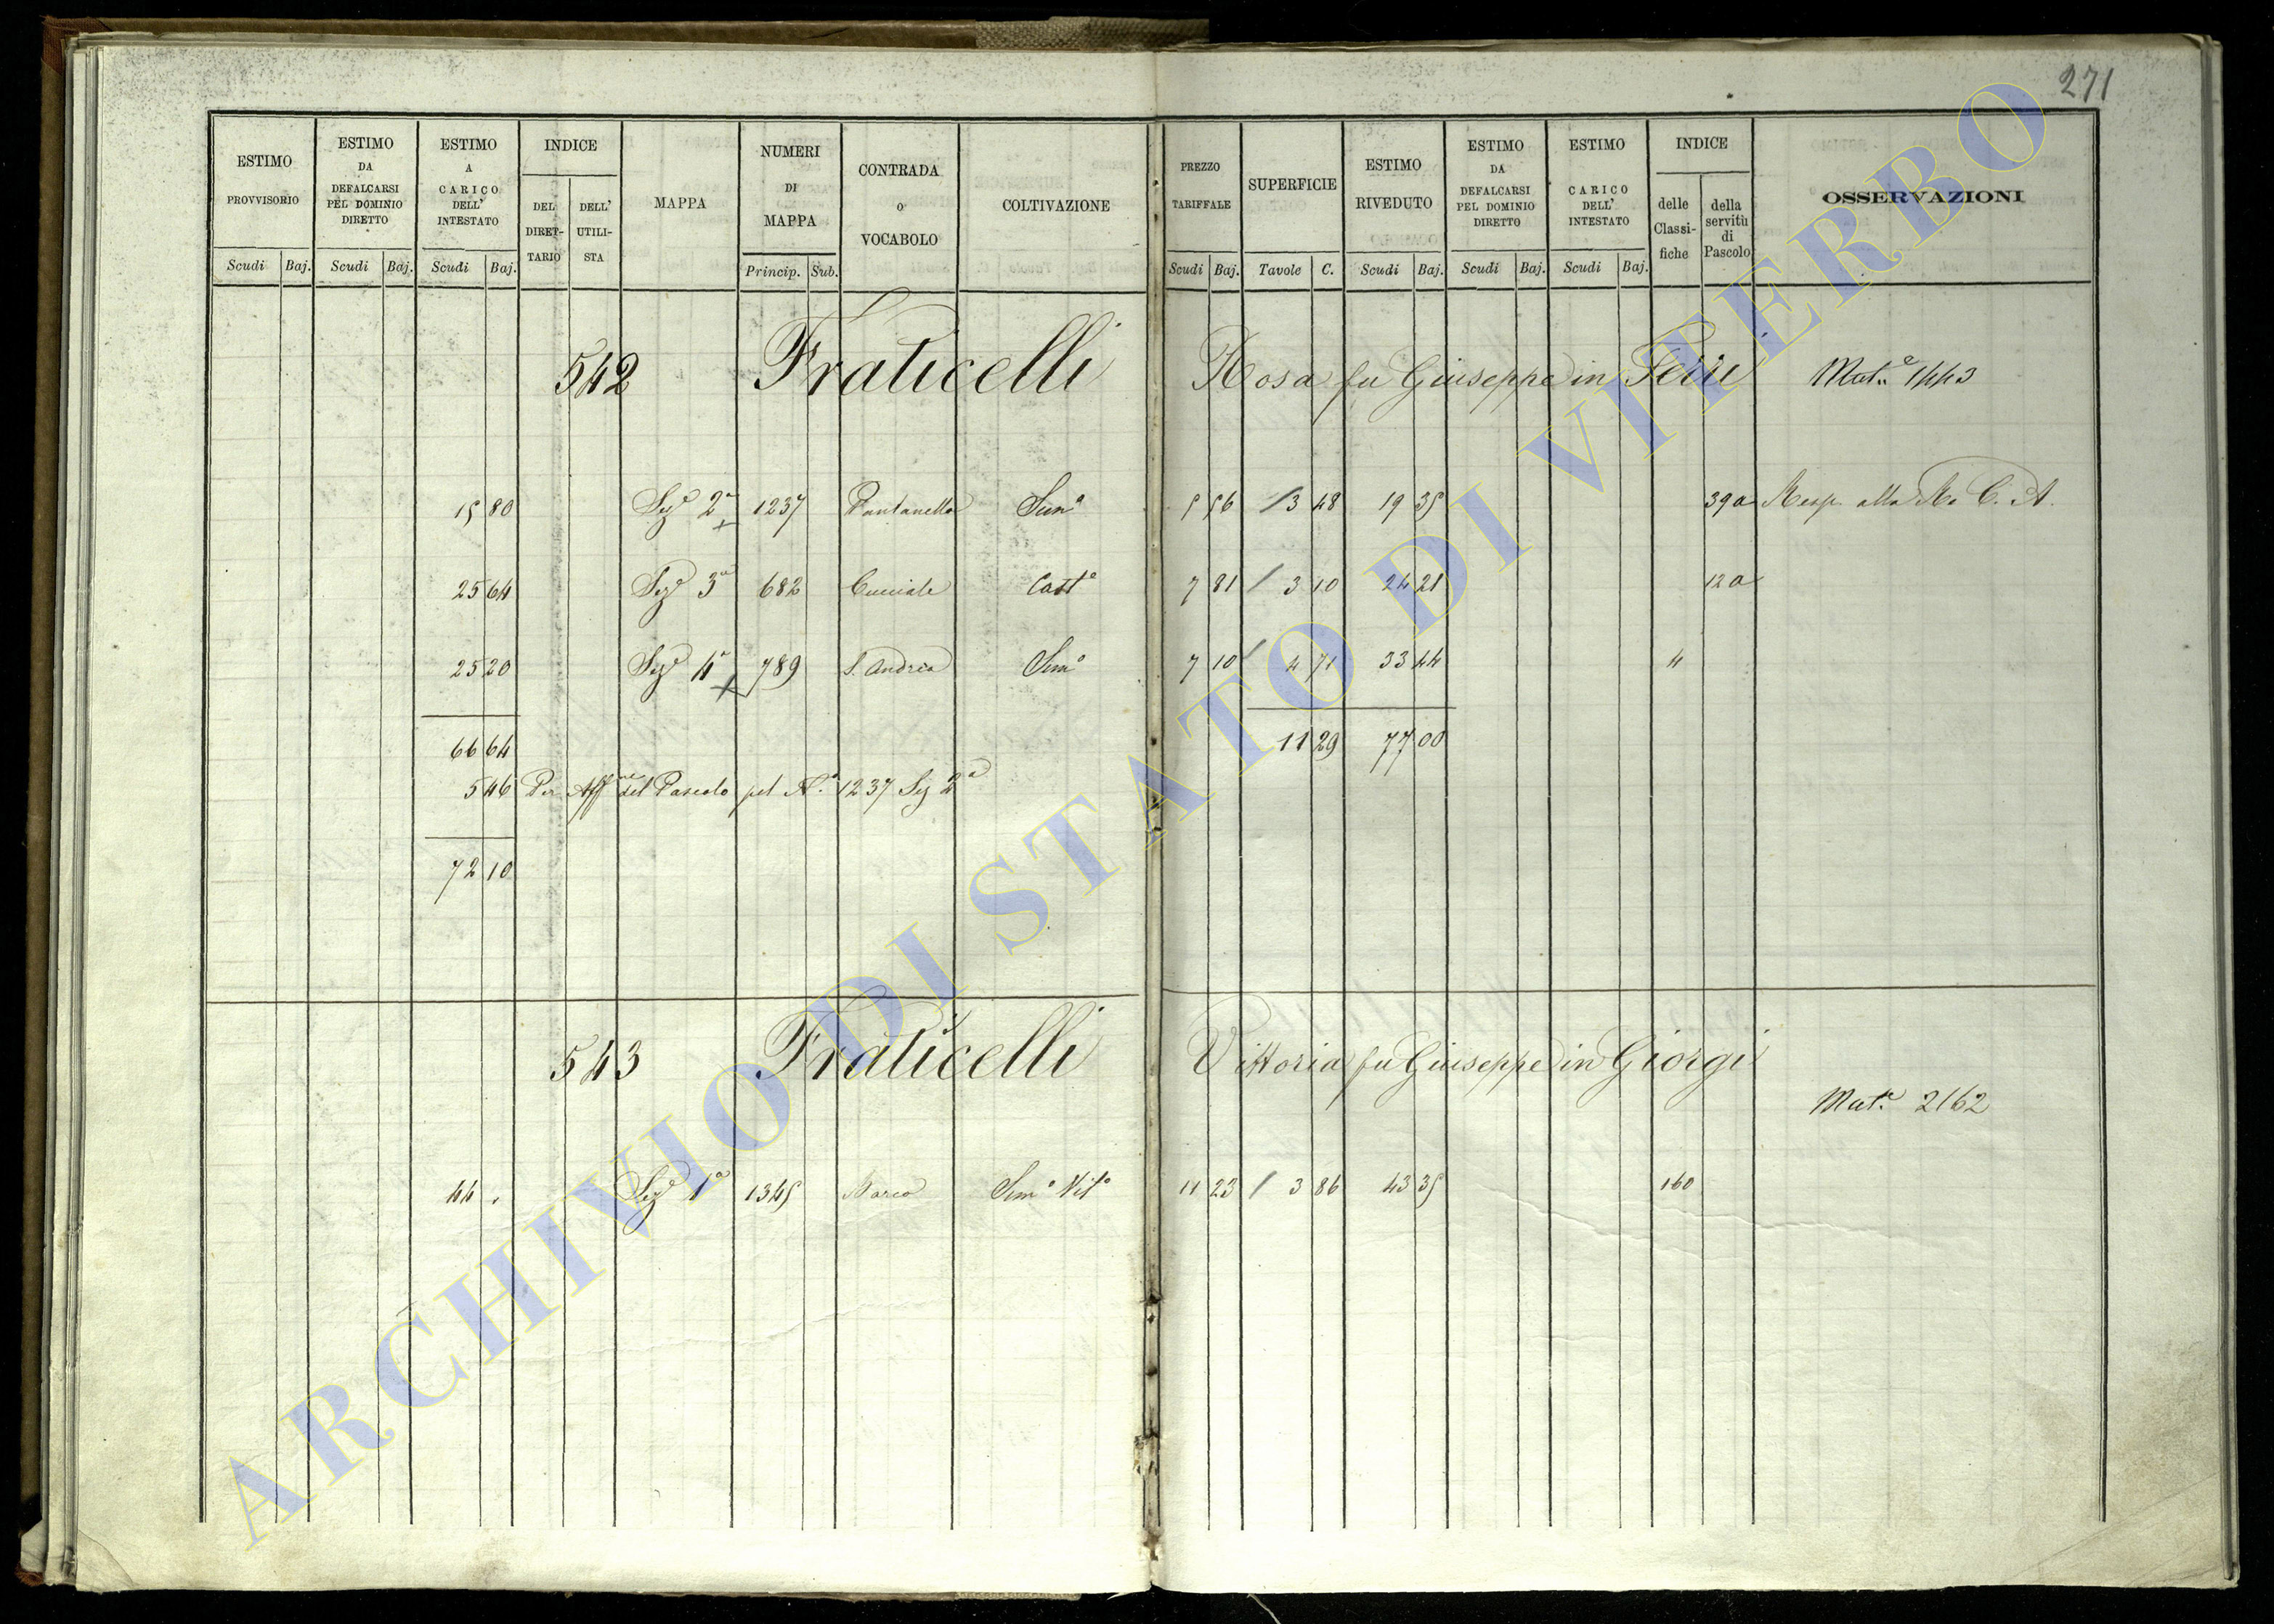 271
ESTIMO PROVVISORIO Scudi Baj.
ESTIMO DA DEFALCARSI PEL DOMINIO DIRETTO Scudi Baj.
ESTIMO A CARICO DELL' INTESTATO Scudi Baj.
INDICE DEL DIRET-TARIO DELL' UTILI-STA
MAPPA
NUMERI DI MAPPA Princip. Sub.
CONTRADA o VOCABOLO
COLTIVAZIONE
PREZZO TARIFFALE Scudi Baj.
SUPERFICIE Tavole C.
ESTIMO RIVEDUTO Scudi Baj.
ESTIMO DA DEFALCARSI PEL DOMINIO DIRETTO Scudi Baj.
ESTIMO CARICO DELL' INTESTATO Scudi Baj.
INDICE delle Classi-fiche della servitù di Pascolo
OSSERVAZIONI
542 Fraticelli Rosa fu Giuseppe in Mat.e 1443
15 80 Sez.e 2a 1237 Pantanella Sem.o 5 56 3 48 19 35 39a Resp. alla R. C. A.
25 64 Sez.e 3a 682 Cast.o 7 81 3 10 24 21 12a
25 20 Sez.e 4a 789 S. Andrea Sem.o 7 10 4 71 33 44 4
66 64 11 29 77 00
5 46 Per Aff.ne del Pascolo pel N.o 1237 Sez 2a
72 10
543 Fraticelli Vittoria fu Giuseppe in Giorgi
Mat.e 2162
44 . Sez.e 1a 1345 Sem.o Vit.o 11 23 3 86 43 35 160
ARCHIVIO DI STATO DI VITERBO